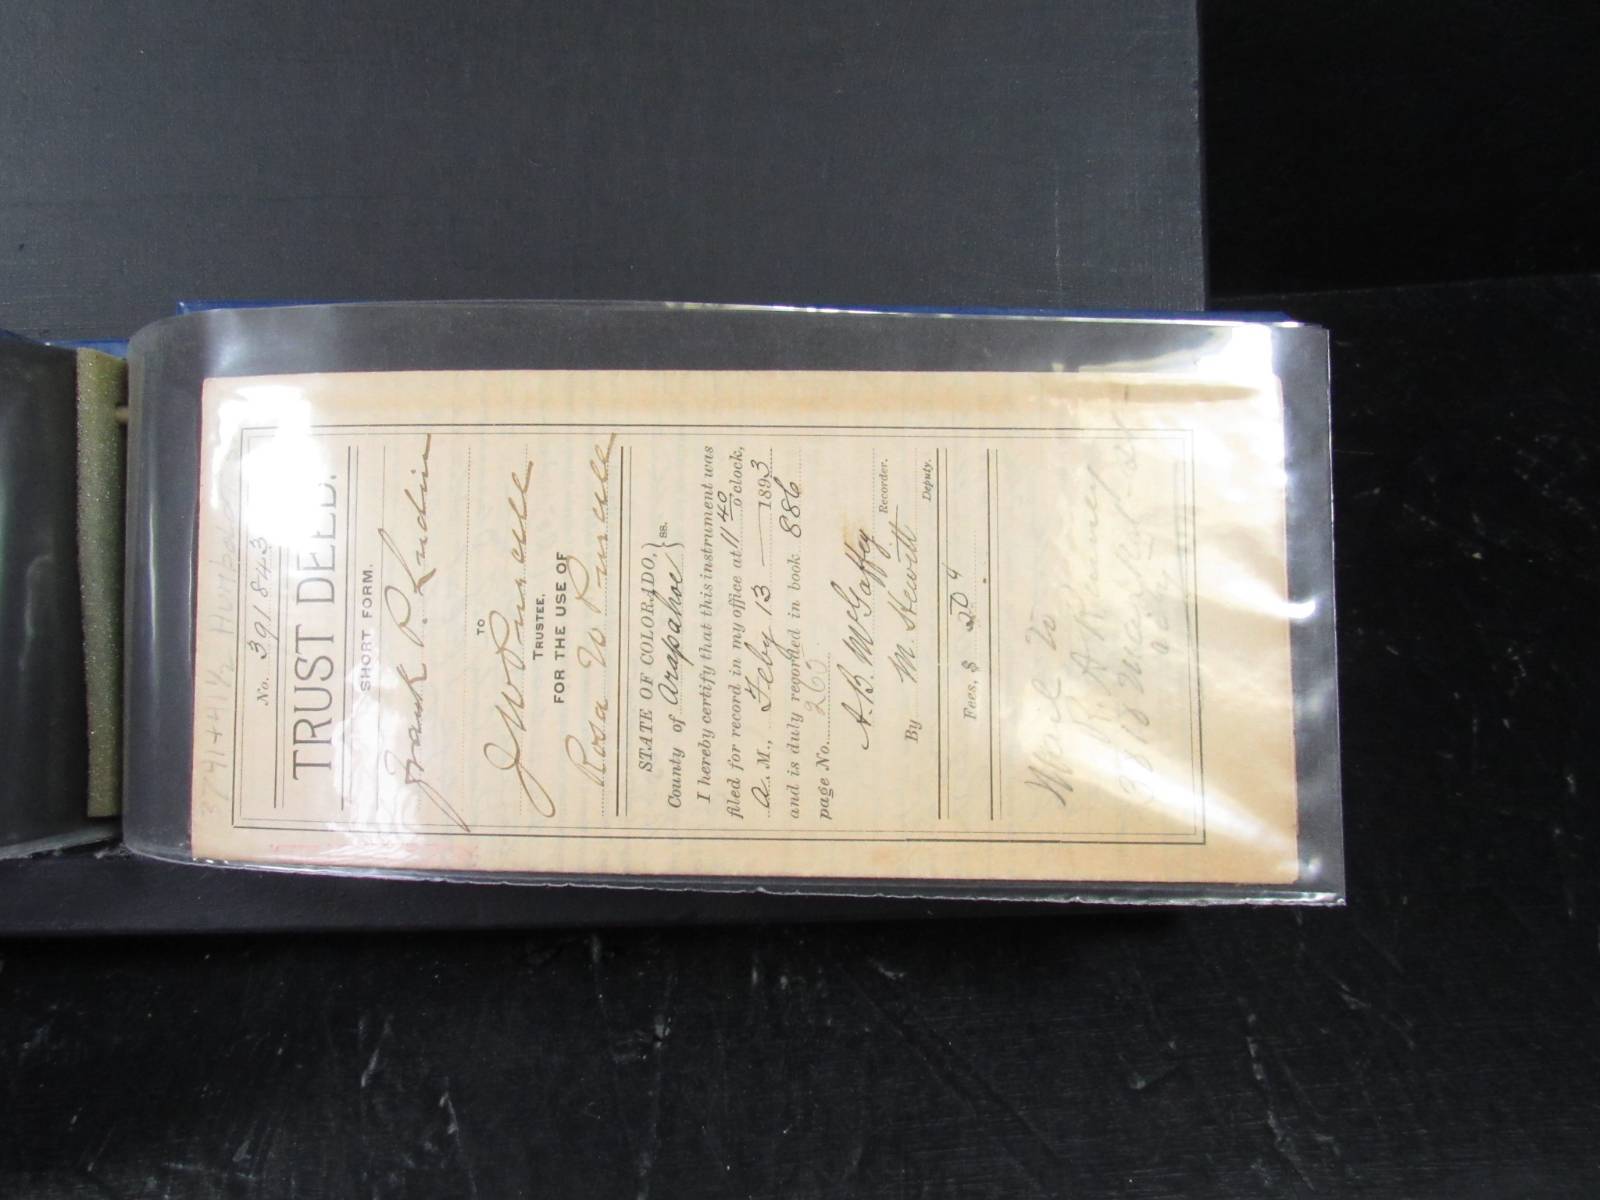 3741+41½ Humboldt
No. 391843
TRUST DEED.
SHORT FORM.
Frank P. Lndin
TO
J W Purcell
TRUSTEE.
FOR THE USE OF
Rosa W Purcell
STATE OF COLORADO, } ss.
County of Arapahoe
I hereby certify that this instrument was
filed for record in my office at 11 40 o'clock,
a. M., Feby 13 1893
and is duly reported in book 886
page No. 260
A. B. McGaffey
Recorder.
By M. Hewitt
Deputy.
Fees, $
Mail to
R. A.